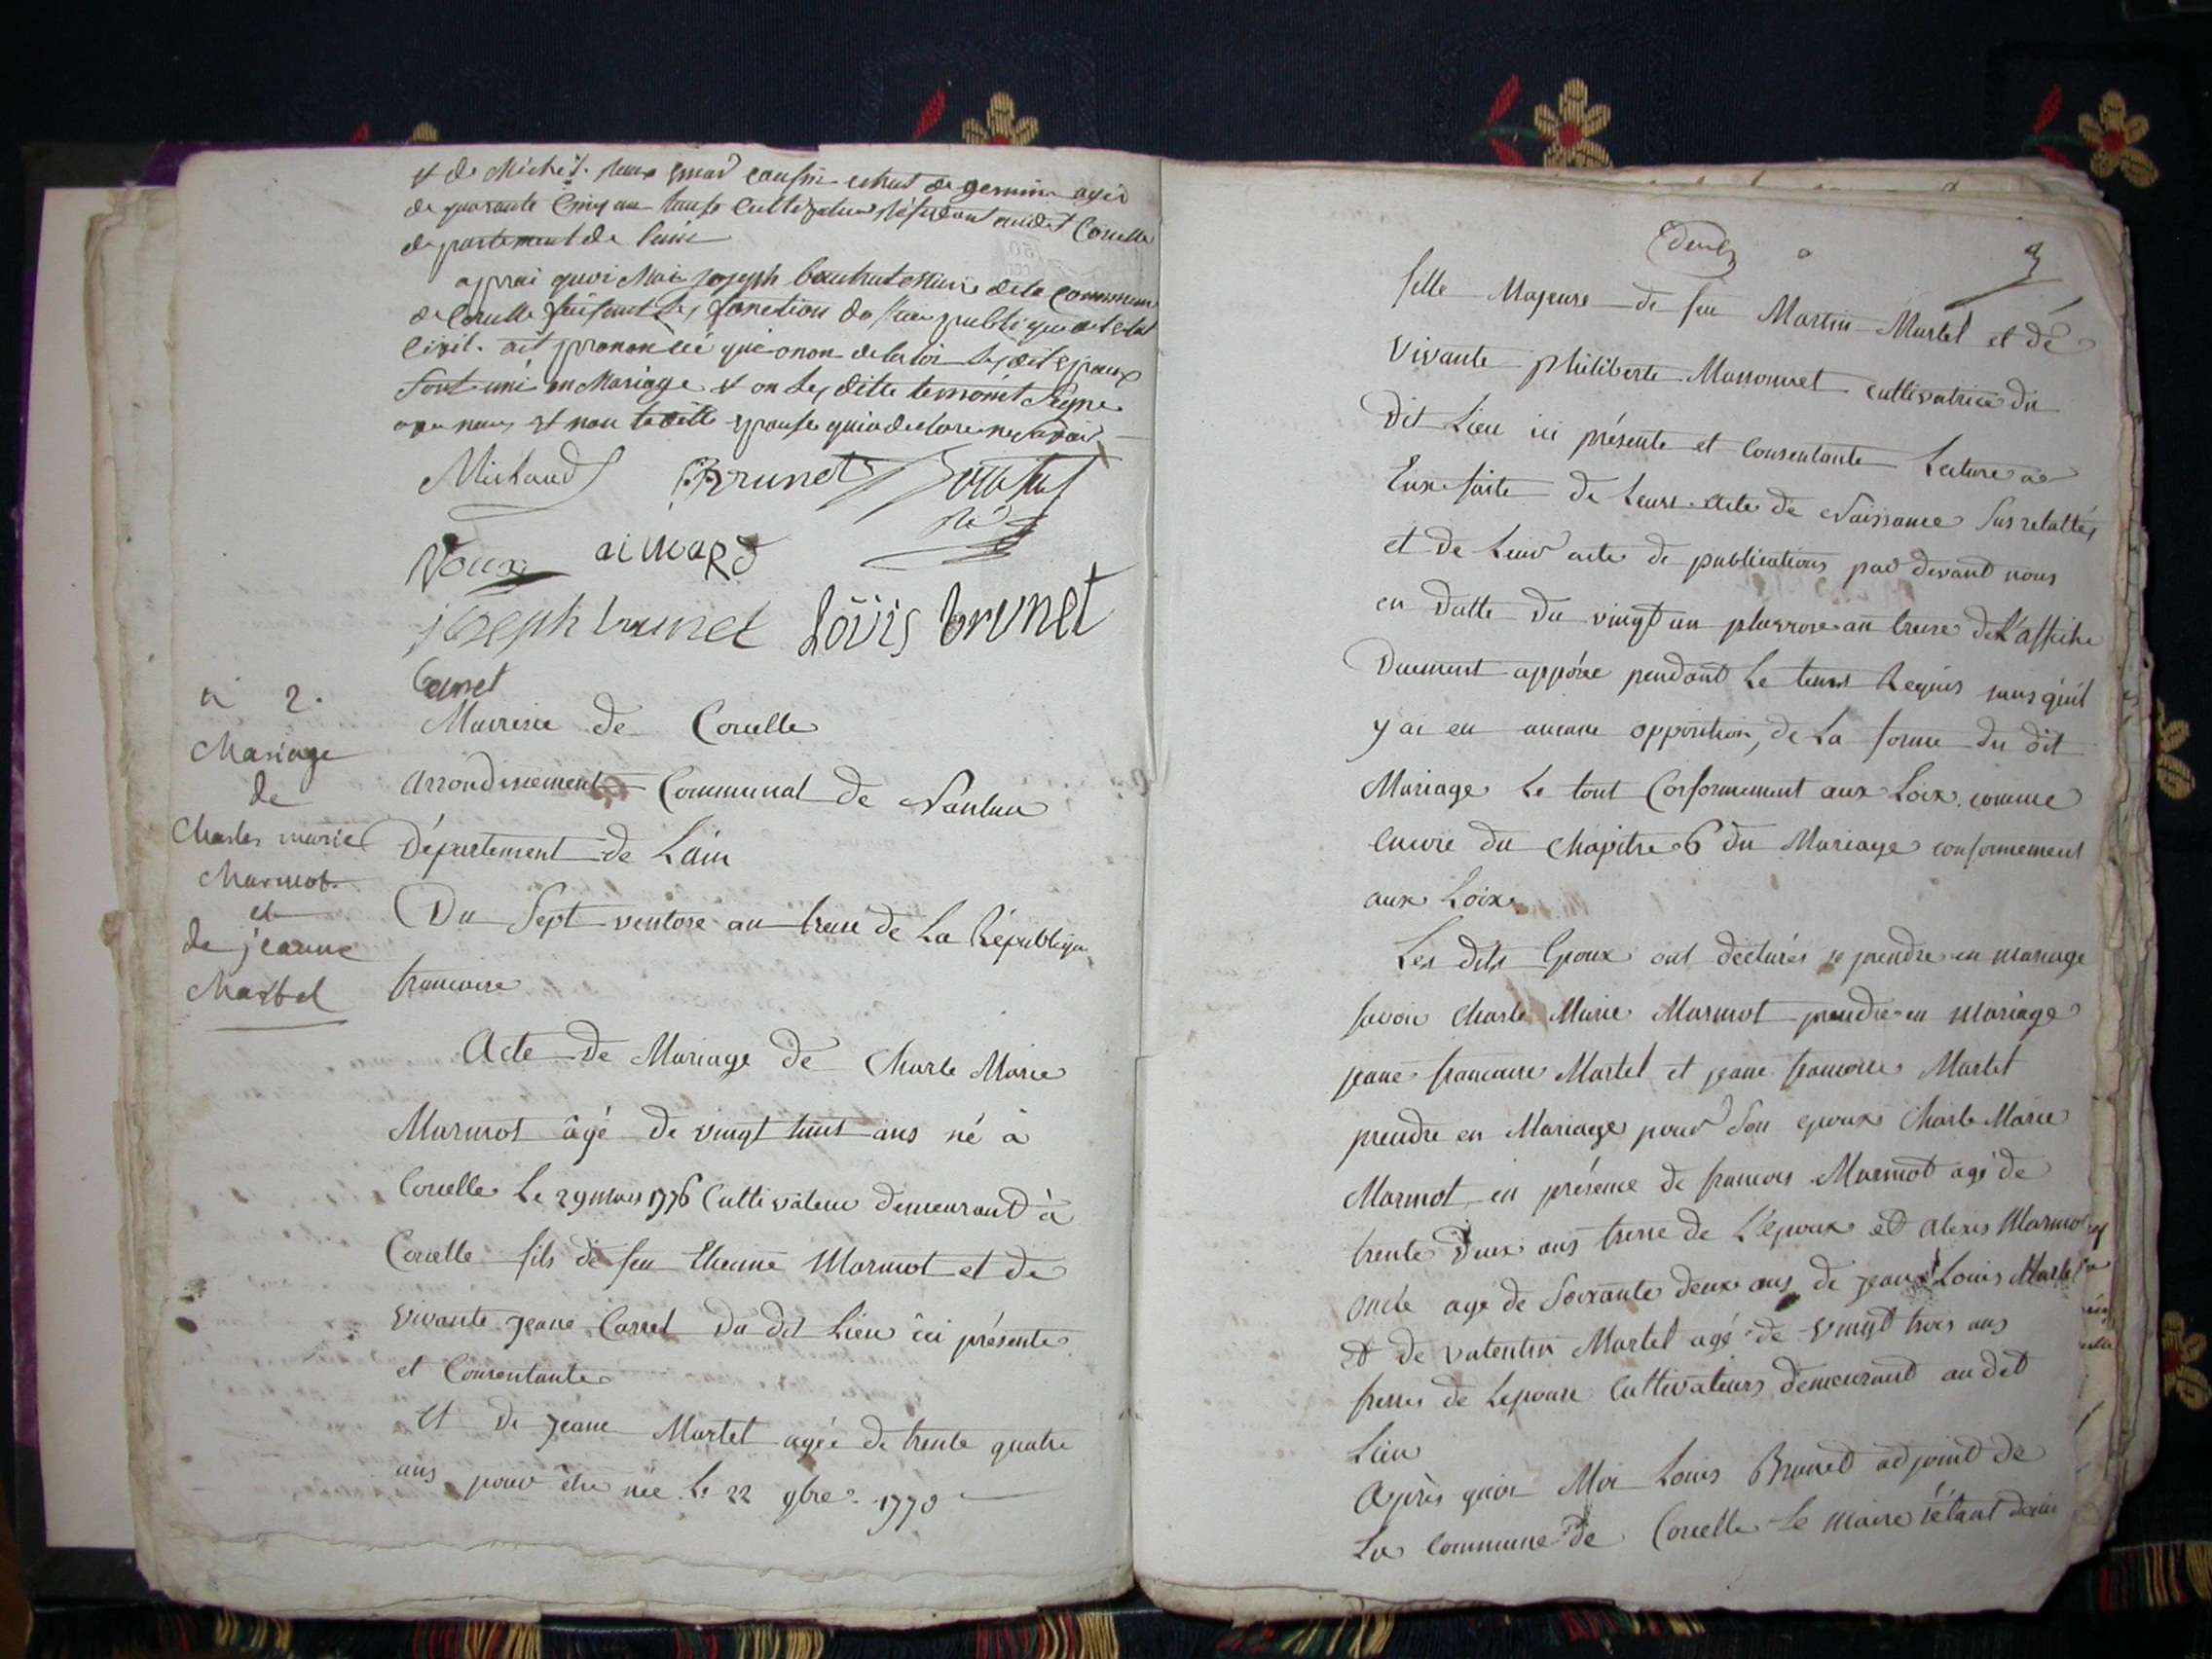 et de Michel
de quarante cinq an cultivateur audit Corcelle
departement de
apprai quoi Moi joseph Maire de la commune
de Corcelle faisant les fonction publique
civil. ait prononcée que onon de la loi les dit epoux
sont uni en Mariage et on les ditte temoint signe
avec nous et non la ditte epouse qui a declare ne savoir
Michaud Brunet
aimard
joseph brunet Loüis brunet
n 2.
Mariage
de
Charles marie
Marmot
et
de jeanne
Martel
Mairerie de Corcelle
arrondissement Communal de Nantua
Département de L'ain
Du Sept ventose an treize de La République
francaise
Acte de Mariage de Charle Marie
Marmot âgé de vingt huit ans né à
Corcelle Le 29 mars 1776 Cultivateur demeurant à
Corcelle fils de feu Etienne Marmot et de
vivante Jeane Carret du dit Lieu ici présente
et Consentante
Et de Jeane Martel agée de trente quatre
ans pour être née Le 22 9bre 1770
3
fille Majeure de feu Martin Martel et de
vivante philiberte Massonnet cultivatrice du
dit Lieu ici présente et Consentante Lecture a
Eux faite de Leurs acte de Naissance sus relattés
et de Leur acte de publications par devant nous
en datte du vingt un pluviose an treize de l'affiche
Duement apposée pendant Le tems Requis sans qu'il
y ai eu aucune opposition, de La forme du dit
Mariage Le tout Conformement aux Loix comme
encore du Chapitre 6 du Mariage conformement
aux Loix
Les dits Epoux ont declarés se prendre en mariage
savoir Charle Marie Marmot prendre en mariage
jeane francoise Martel et jeane francoise Martel
prendre en Mariage pour son epoux Charle Marie
Marmot en présence de francois Marmot agé de
trente deux ans frerre de L'epoux et alexis Marmot
oncle agé de soixante deux ans de jean Louis Martel
et de valentin Martel agé de vingt trois ans
frerres de Lepouse Cultivateurs demeurant au dit
Lieu
Après quoi Moi Louis Brunet adjoint de
La Commune de Corcelle Le maire s'étant